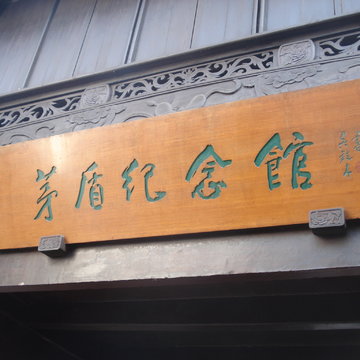 茅盾纪念馆